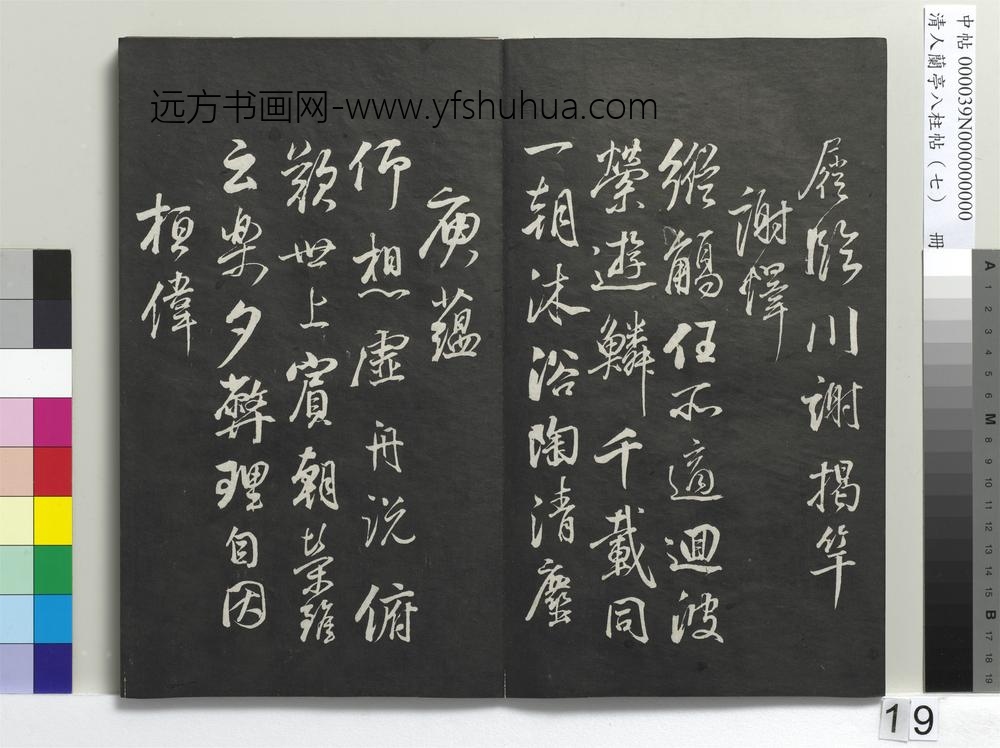 屣臨川謝揭竿
謝繹
縱觴任所適迴波
縈遊鱗千載同
一朝沐浴陶清塵
庾蘊
仰想虛舟說俯
歎世上賓朝榮雖
云樂夕弊理自因
桓偉
远方书画网-www.yfshuhua.com
中帖 000039N000000000
清人蘭亭八柱帖(七) 冊
A 1 2 3 4 5 6 M 8 9 10 11 12 13 14 15 B 17 18 19
19